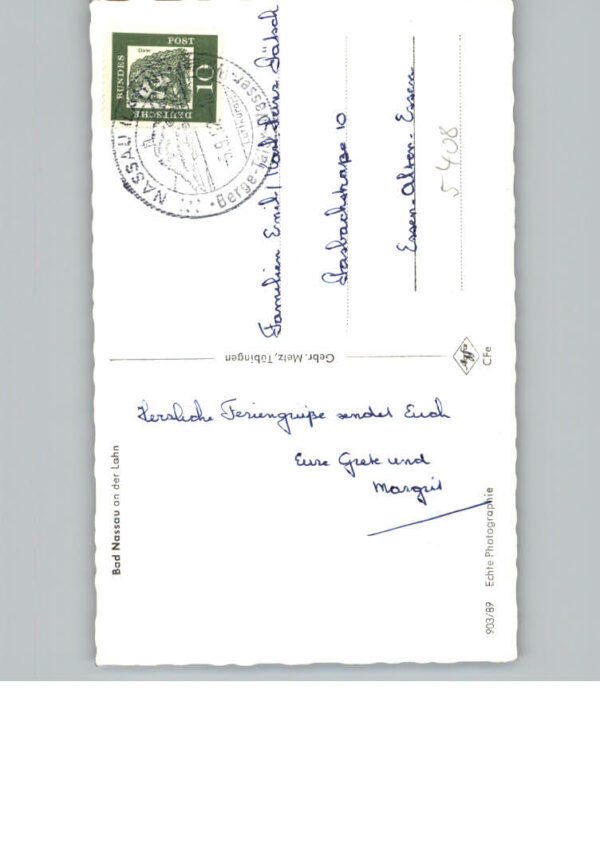 DEUTSCHE
BUNDES
POST
10
NASSAU
Berge
Familien Emil/Karl-Heinz
10
Essen-Alten-Essen
5408
Gebr. Metz, Tübingen
Agfa
CFe
Herzliche Feriengrüße sendet Euch
Eure Grete und
Margrit
Bad Nassau an der Lahn
903/89 Echte Photographie